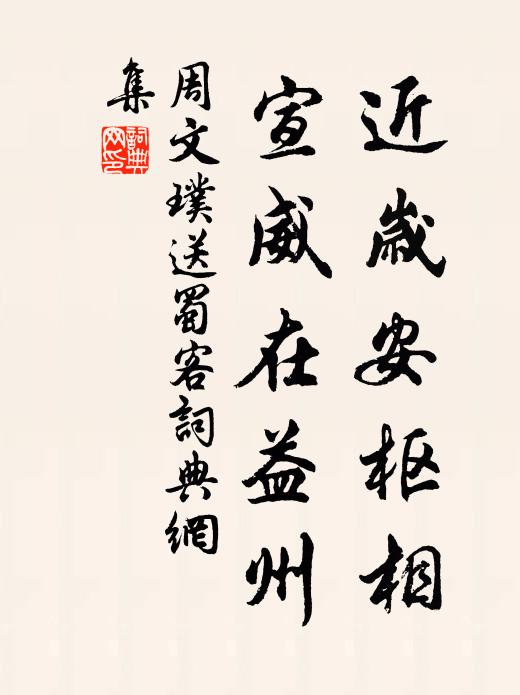 近歲安枢相
宣威在益州
周文璞送蜀客詞典網
集
詞典网印